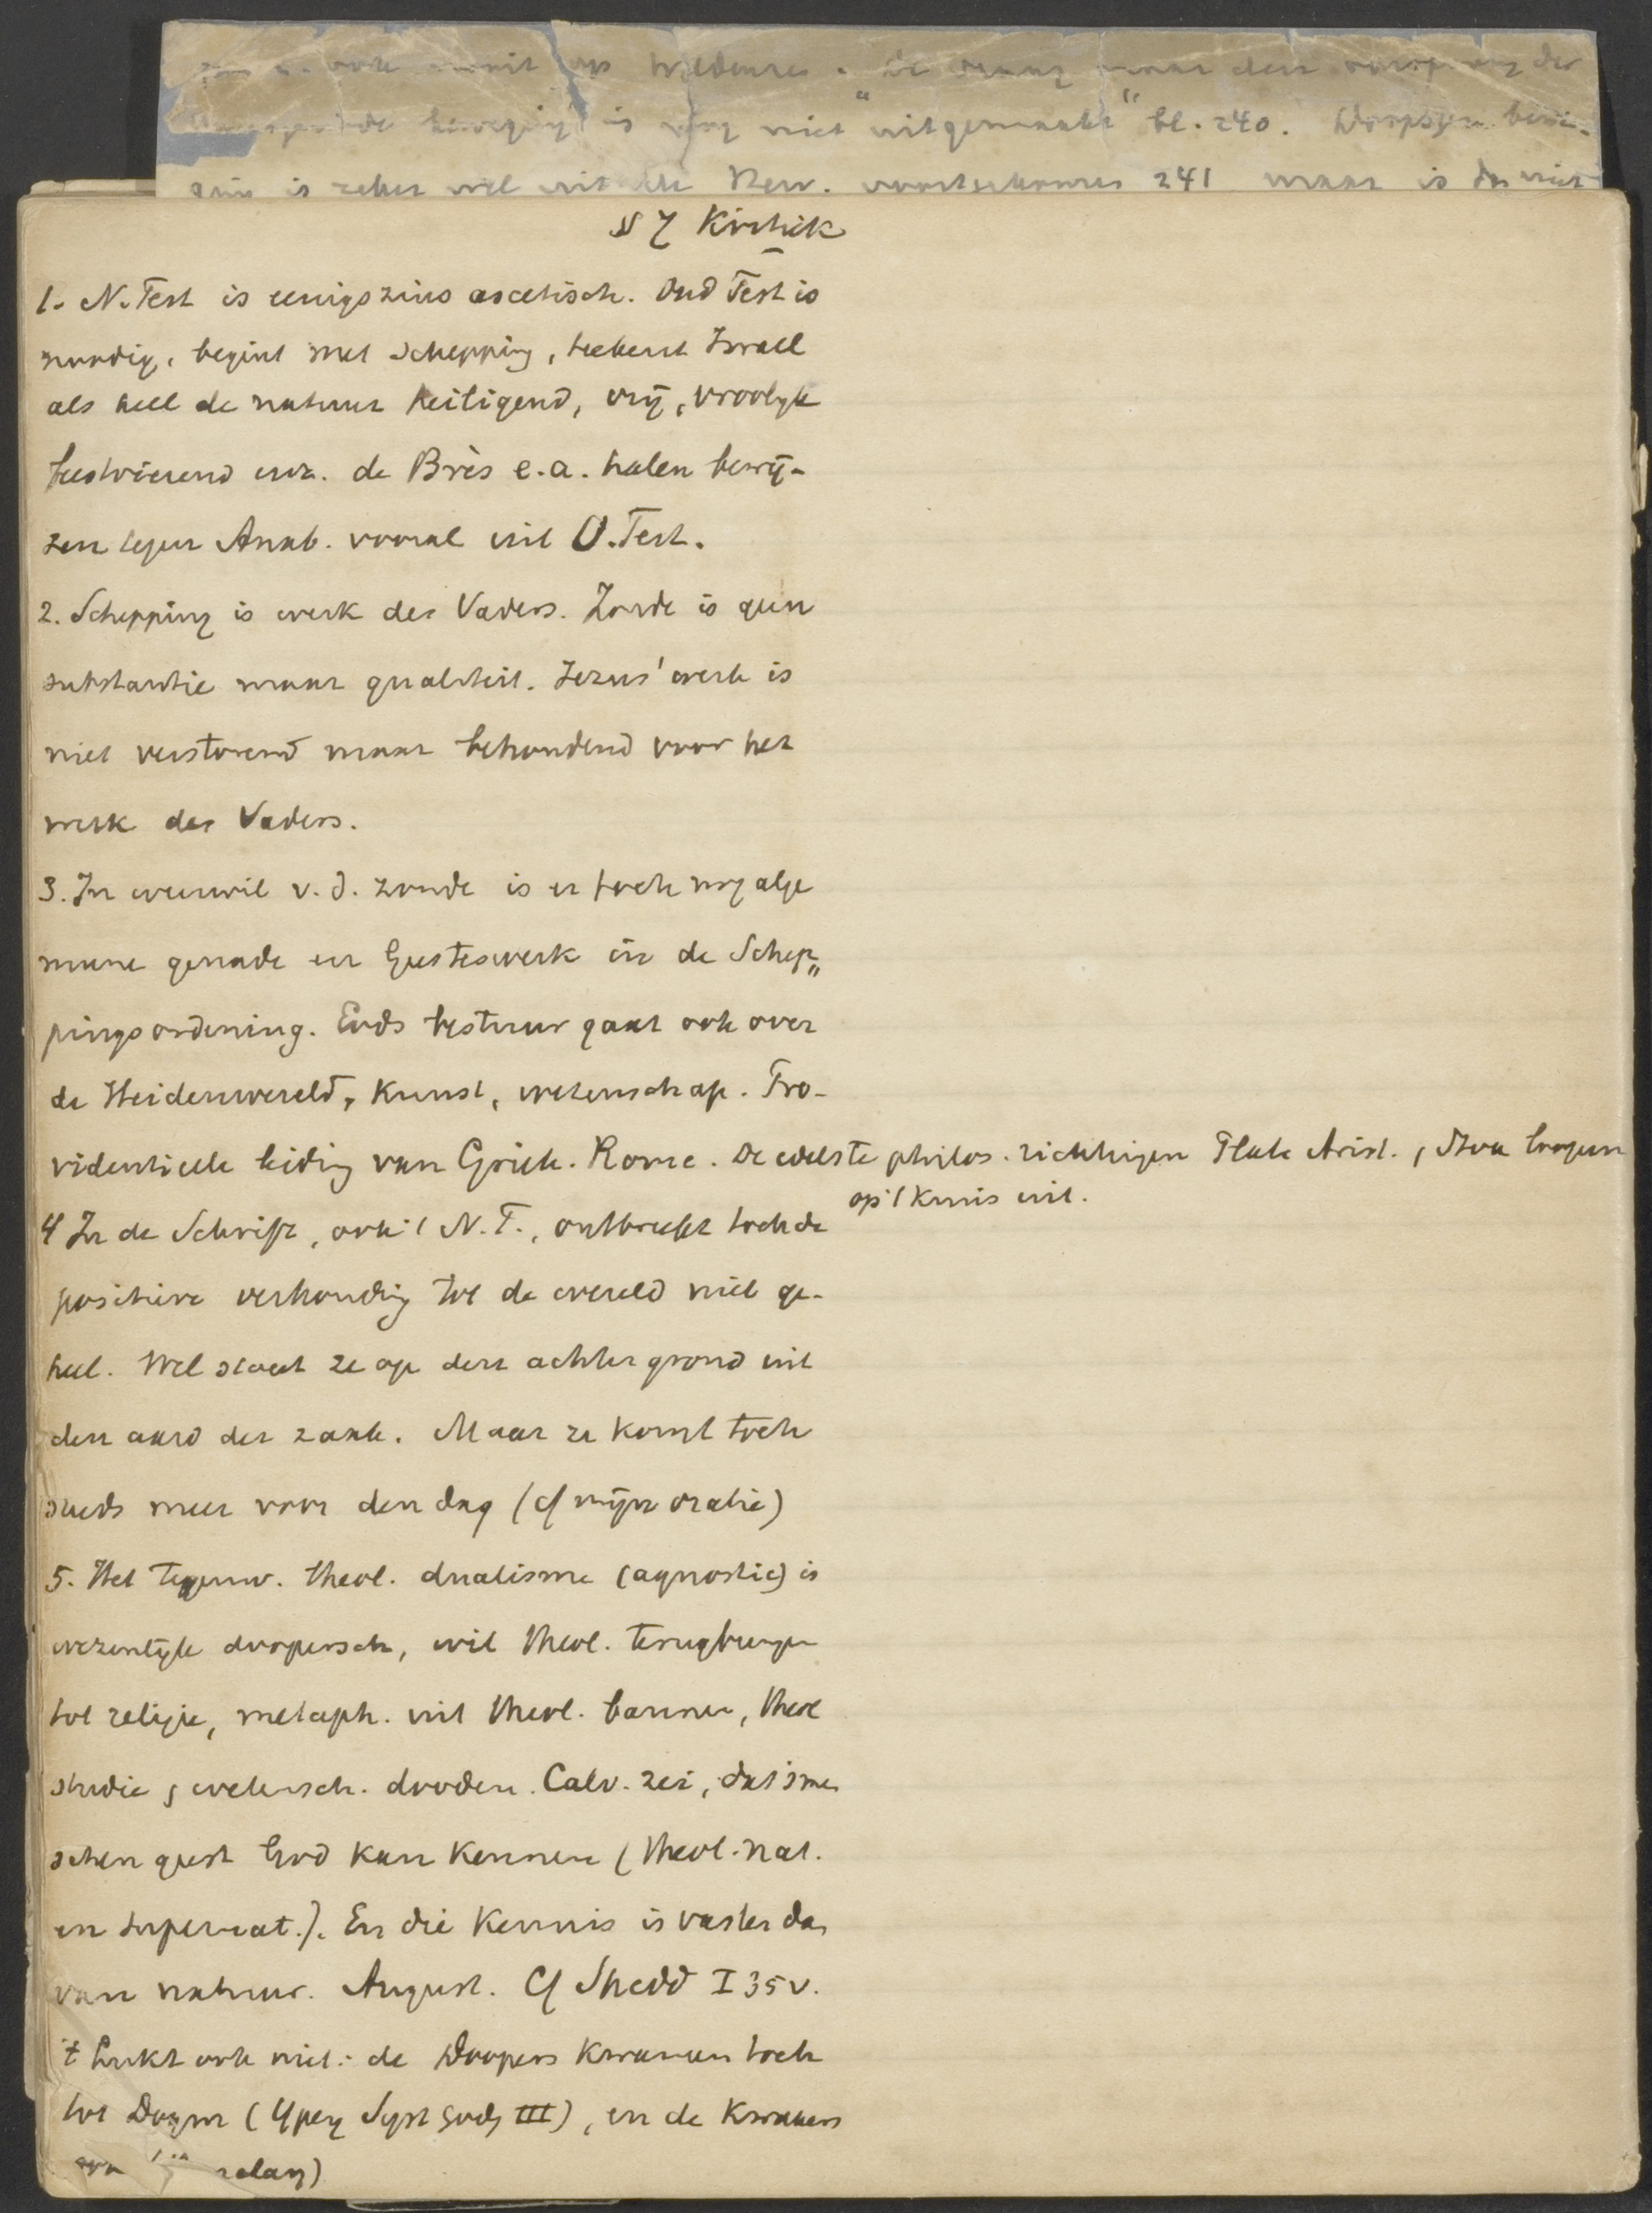 is nog niet "uitgemaakt" bl. 240. Doopsgez. bewe-
ging is zeker wel uit de Herv. voortgekomen 241 maar is dus niet
§ 7 Kritiek
1. N. Test is eenigszins ascetisch. Oud Test is
noodig, begint met Schepping, teekent Israel
als heel de natuur heiligend, vrij, vroolyk
feestvierend enz. de Brès e.a. halen bewij-
zen tegen Anab. vooral uit O. Test.
2. Schepping is werk des Vaders. Zonde is geen
substantie maar qualiteit. Jezus' werk is
niet verstorend maar behoudend voor het
werk des Vaders.
3. In weerwil v. d. zonde is er toch nog alge
meene genade en Geesteswerk in de Schep„
pingsordening. Gods bestuur gaat ook over
de Heidenwereld, Kunst, wetenschap. Pro-
videntieele leiding van Griek. Rome. De edelste philos. richtingen Plato Arist., Stoa loopen
op 't Kruis uit.
4 In de Schrift, ook 't N. T., ontbreekt toch de
positieve verhouding tot de wereld niet ge-
heel. Wel staat ze op den achtergrond uit
den aard der zaak. Maar ze komt toch
steeds meer voor den dag (cf mijn oratie)
5. Het tegenw. theol. dualisme (agnostic) is
wezenlijk doopersch, wil theol. terugbrengen
tot religie, metaph. uit theol. bannen, theol
studie, wetensch. dooden. Calv. zei, dat 's men
schen geest God kan kennen (theol. nat.
en supernat.). En die Kennis is vaster dan
van natuur. August. Cf Shedd I 35 v.
't Lukt ook niet: de Doopers kwamen toch
tot Dogm (Ypey Syst Godg III), en de Kwakers
ook Barclay)